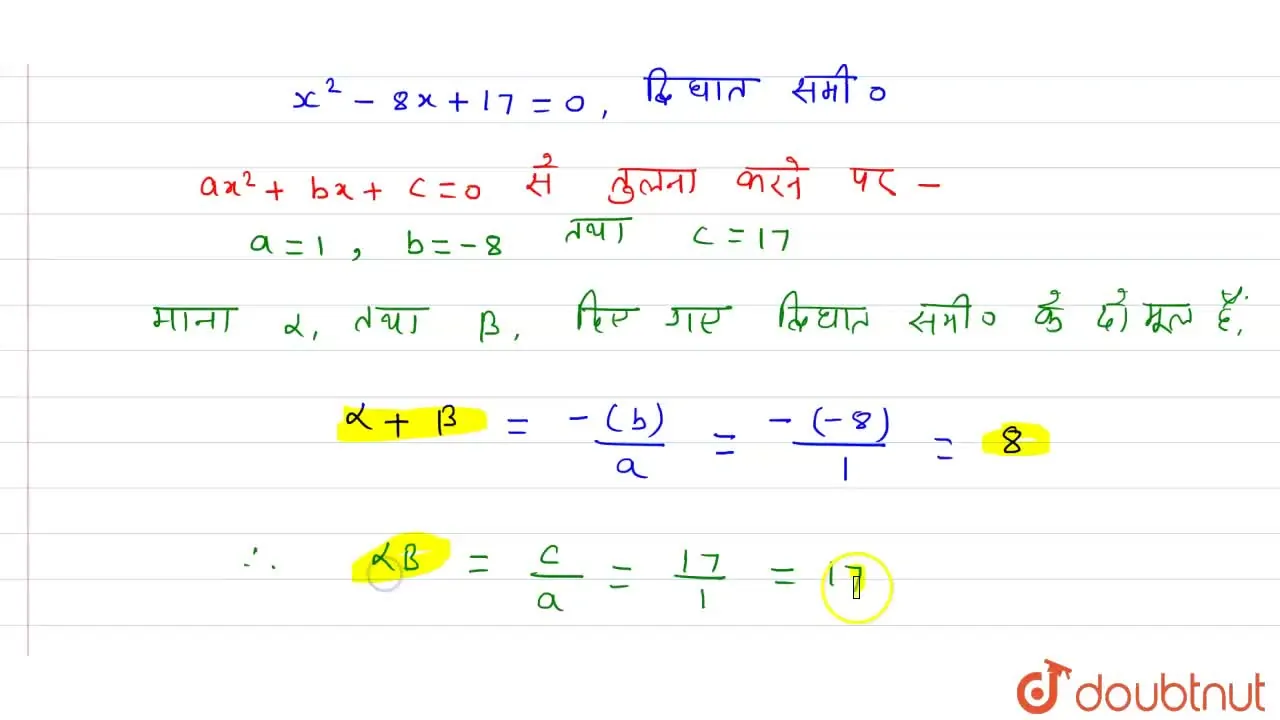 x² - 8x + 17 = 0, द्विघात समी०
ax² + bx + c = 0 से तुलना करने पर -
a = 1, b = -8 तथा c = 17
माना α, तथा β, दिए गए द्विघात समी० के दो मूल हैं.
α + β = -(b)/a = -(-8)/1 = 8
∴ αβ = c/a = 17/1 = 17
doubtnut